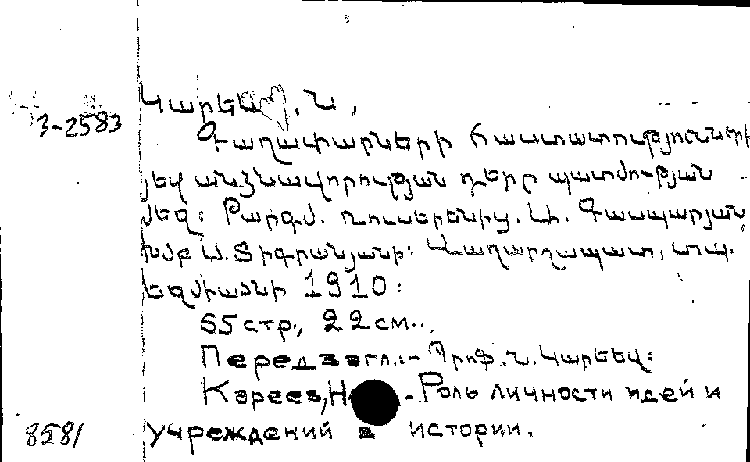 Կարեև, Ն,
3-2583
Գաղափարների հաստատությունների
յեվ անձնավորության դերը պատմության
մեջ: Թարգմ. ռուսերենից. Լի. Գասպարյան
խմբ Ա. Տիգրանյանի: Վաղարշապատ, տպ.
եջմիածնի 1910:
55 стр., 22 см..
Перед загл.:- Պրոֆ. Ն. Կարեեվ:
Кареев, Н - Роль личности идей и
8581 учреждений в истории.